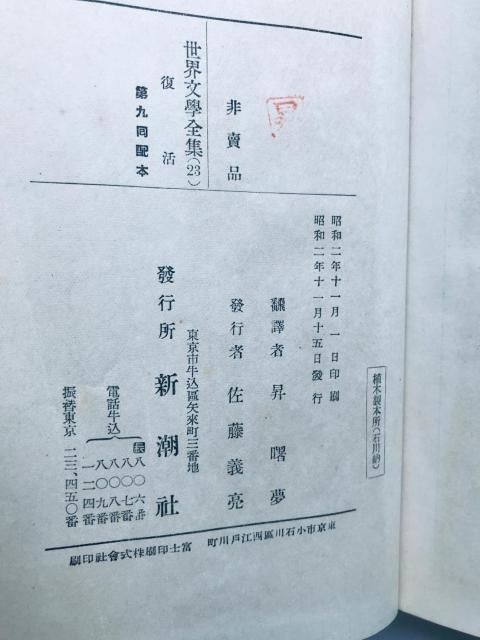 昭和二年十一月一日印刷
昭和二年十一月十五日發行
非賣品
世界文學全集(23)
復活
第九回配本
飜譯者 昇曙夢
發行者 佐藤義亮
東京市牛込區矢來町三番地
發行所 新潮社
電話牛込
八〇六番
八〇七番
八〇八番
八〇九番
一二四番
振替東京 二三、四五〇番
植木製本所(石川納)
東京市小石川區西江戸川町 富士印刷株式會社印刷